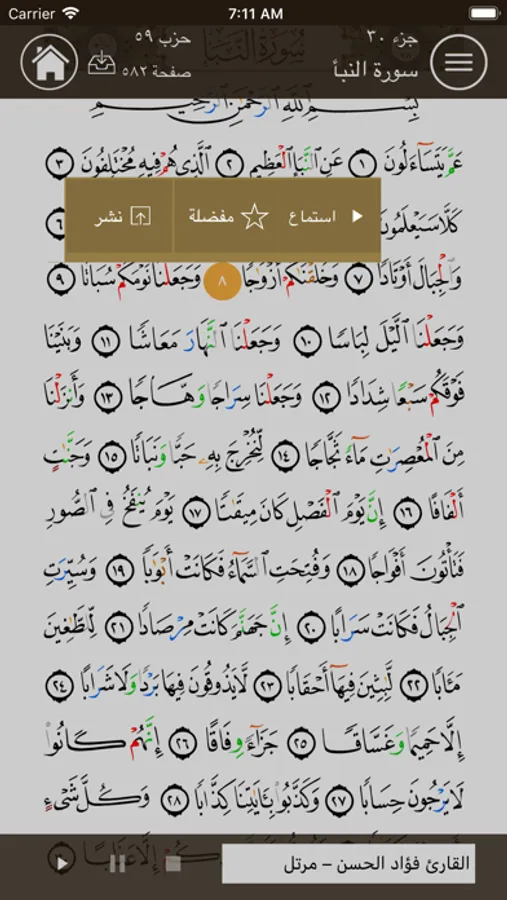 Carrier 7:11 AM
جزء ٣٠ حزب ٥٩
سورة النبأ صفحة ٥٨٢
سُورَةُ النَّبَأ
بِسْمِ اللَّهِ الرَّحْمَٰنِ الرَّحِيمِ
عَمَّ يَتَسَاءَلُونَ ١ عَنِ النَّبَإِ الْعَظِيمِ ٢ الَّذِي هُمْ فِيهِ مُخْتَلِفُونَ ٣
كَلَّا سَيَعْلَمُونَ
استماع مفضلة نشر
وَالْجِبَالَ أَوْتَادًا ٧ وَخَلَقْنَاكُمْ أَزْوَاجًا ٨ وَجَعَلْنَا نَوْمَكُمْ سُبَاتًا ٩
وَجَعَلْنَا اللَّيْلَ لِبَاسًا ١٠ وَجَعَلْنَا النَّهَارَ مَعَاشًا ١١ وَبَنَيْنَا
فَوْقَكُمْ سَبْعًا شِدَادًا ١٢ وَجَعَلْنَا سِرَاجًا وَهَّاجًا ١٣ وَأَنزَلْنَا
مِنَ الْمُعْصِرَاتِ مَاءً ثَجَّاجًا ١٤ لِّنُخْرِجَ بِهِ حَبًّا وَنَبَاتًا ١٥ وَجَنَّاتٍ
أَلْفَافًا ١٦ إِنَّ يَوْمَ الْفَصْلِ كَانَ مِيقَاتًا ١٧ يَوْمَ يُنفَخُ فِي الصُّورِ
فَتَأْتُونَ أَفْوَاجًا ١٨ وَفُتِحَتِ السَّمَاءُ فَكَانَتْ أَبْوَابًا ١٩ وَسُيِّرَتِ
الْجِبَالُ فَكَانَتْ سَرَابًا ٢٠ إِنَّ جَهَنَّمَ كَانَتْ مِرْصَادًا ٢١ لِّلطَّاغِينَ
مَآبًا ٢٢ لَّابِثِينَ فِيهَا أَحْقَابًا ٢٣ لَّا يَذُوقُونَ فِيهَا بَرْدًا وَلَا شَرَابًا ٢٤
إِلَّا حَمِيمًا وَغَسَّاقًا ٢٥ جَزَاءً وِفَاقًا ٢٦ إِنَّهُمْ كَانُوا
لَا يَرْجُونَ حِسَابًا ٢٧ وَكَذَّبُوا بِآيَاتِنَا كِذَّابًا ٢٨ وَكُلَّ شَيْءٍ
القارئ فؤاد الحسن – مرتل